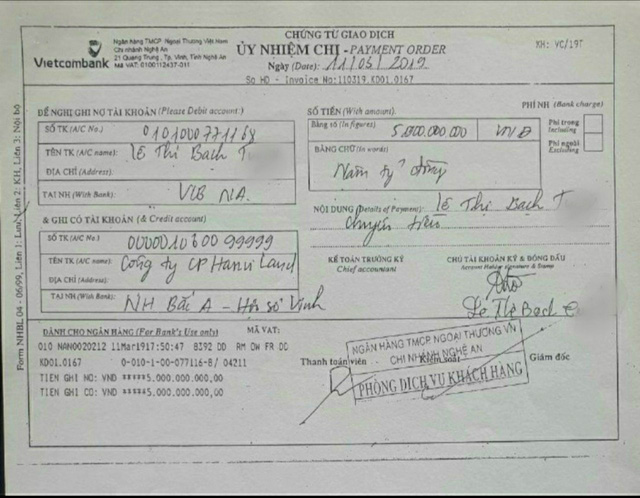 CHỨNG TỪ GIAO DỊCH
Vietcombank
Ngân hàng TMCP Ngoại Thương Việt Nam
Chi nhánh Nghệ An
21 Quang Trung, Tp. Vinh, Tỉnh Nghệ An
Mã VAT: 0100112437-011
ỦY NHIỆM CHI - PAYMENT ORDER
KH: VC/19T
Ngày (Date): 11/03/2019
So HD - Invoice No:110319.KD01.0167
Form NHBL 04 - 06/99, Liên 1: Lưu, Liên 2: KH, Liên 3: Nội bộ
ĐỀ NGHỊ GHI NỢ TÀI KHOẢN (Please Debit account):
SỐ TK (A/C No.) 0101000771168
TÊN TK (A/C name): Lê Thị Bạch T
ĐỊA CHỈ (Address):
TẠI NH (With Bank): VCB NA.
SỐ TIỀN (With amount):
PHÍ NH (Bank charge)
Bằng số (In figures) 5.000.000.000 VNĐ
Phí trong
Including
Phí ngoài
Excluding
BẰNG CHỮ (In words)
Năm tỷ đồng
NỘI DUNG (Details of Payment): Lê Thị Bạch T
chuyển tiền
& GHI CÓ TÀI KHOẢN (& Credit account)
SỐ TK (A/C No.)
TÊN TK (A/C name): Công ty CP Hanvi Land
ĐỊA CHỈ (Address):
TẠI NH (With Bank): NH Bắc Á - Hội sở Vinh
KẾ TOÁN TRƯỞNG KÝ
Chief accountant
CHỦ TÀI KHOẢN KÝ & ĐÓNG DẤU
Account Holder signature & Stamp
Lê Thị Bạch
DÀNH CHO NGÂN HÀNG (For Bank's Use only) MÃ VAT:
010 NAN0020212 11Mar1917:50:47 8392 DD RM OW FR DC
KD01.0167 0-010-1-00-077116-8/ 04211
TIEN GHI NO: VND *****5.000.000.000,00
TIEN GHI CO: VND *****5.000.000.000,00
Thanh toán viên Kiểm soát Giám đốc
NGÂN HÀNG TMCP NGOẠI THƯƠNG VN
CHI NHÁNH NGHỆ AN
PHÒNG DỊCH VỤ KHÁCH HÀNG